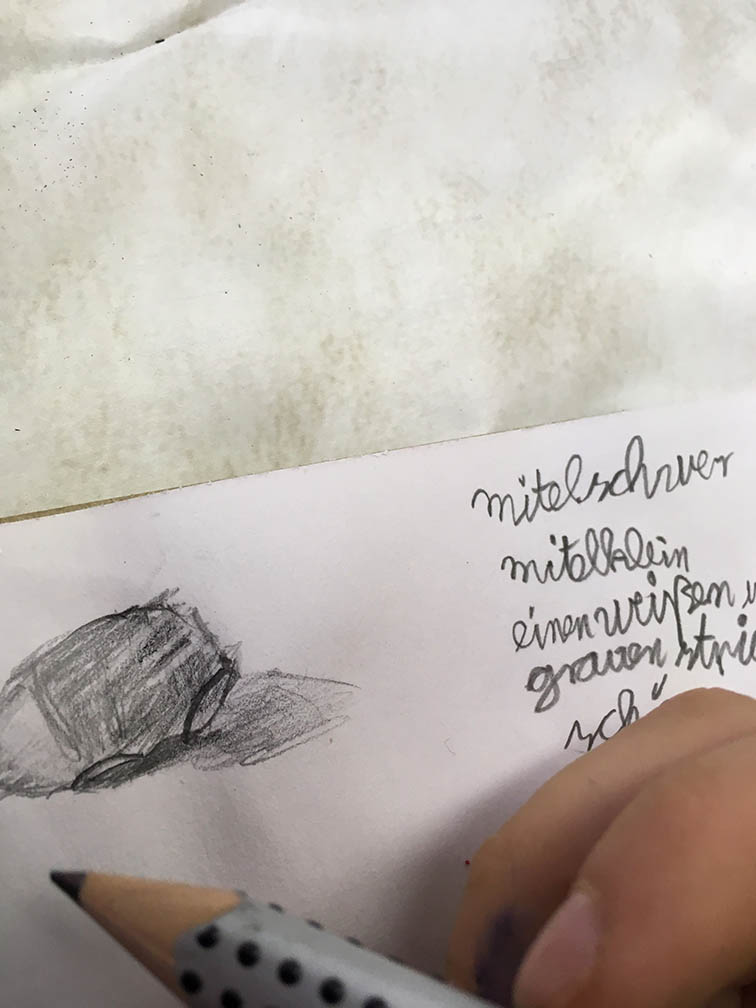 mitelschwer
mitelklein
einen weißen
grauen